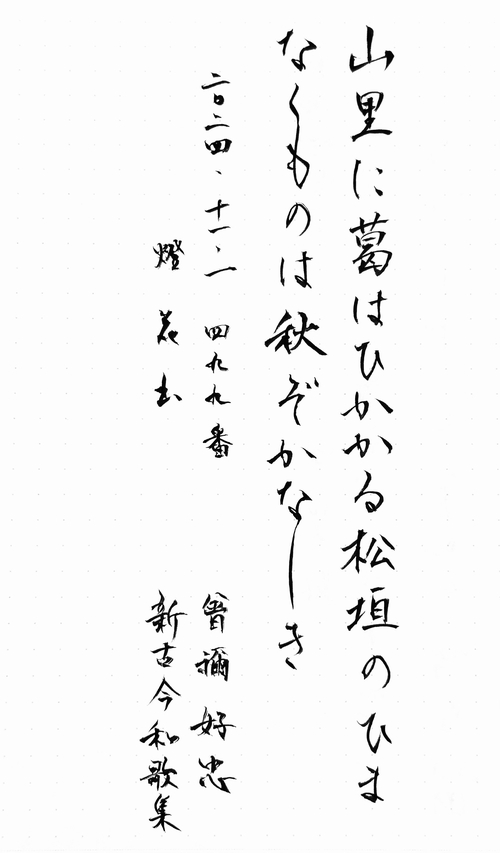 山里に葛はひかかる松垣のひま
なくものは秋ぞかなしき
二〇二四、十一、一　四九九番　曾禰好忠
燈花出　新古今和歌集